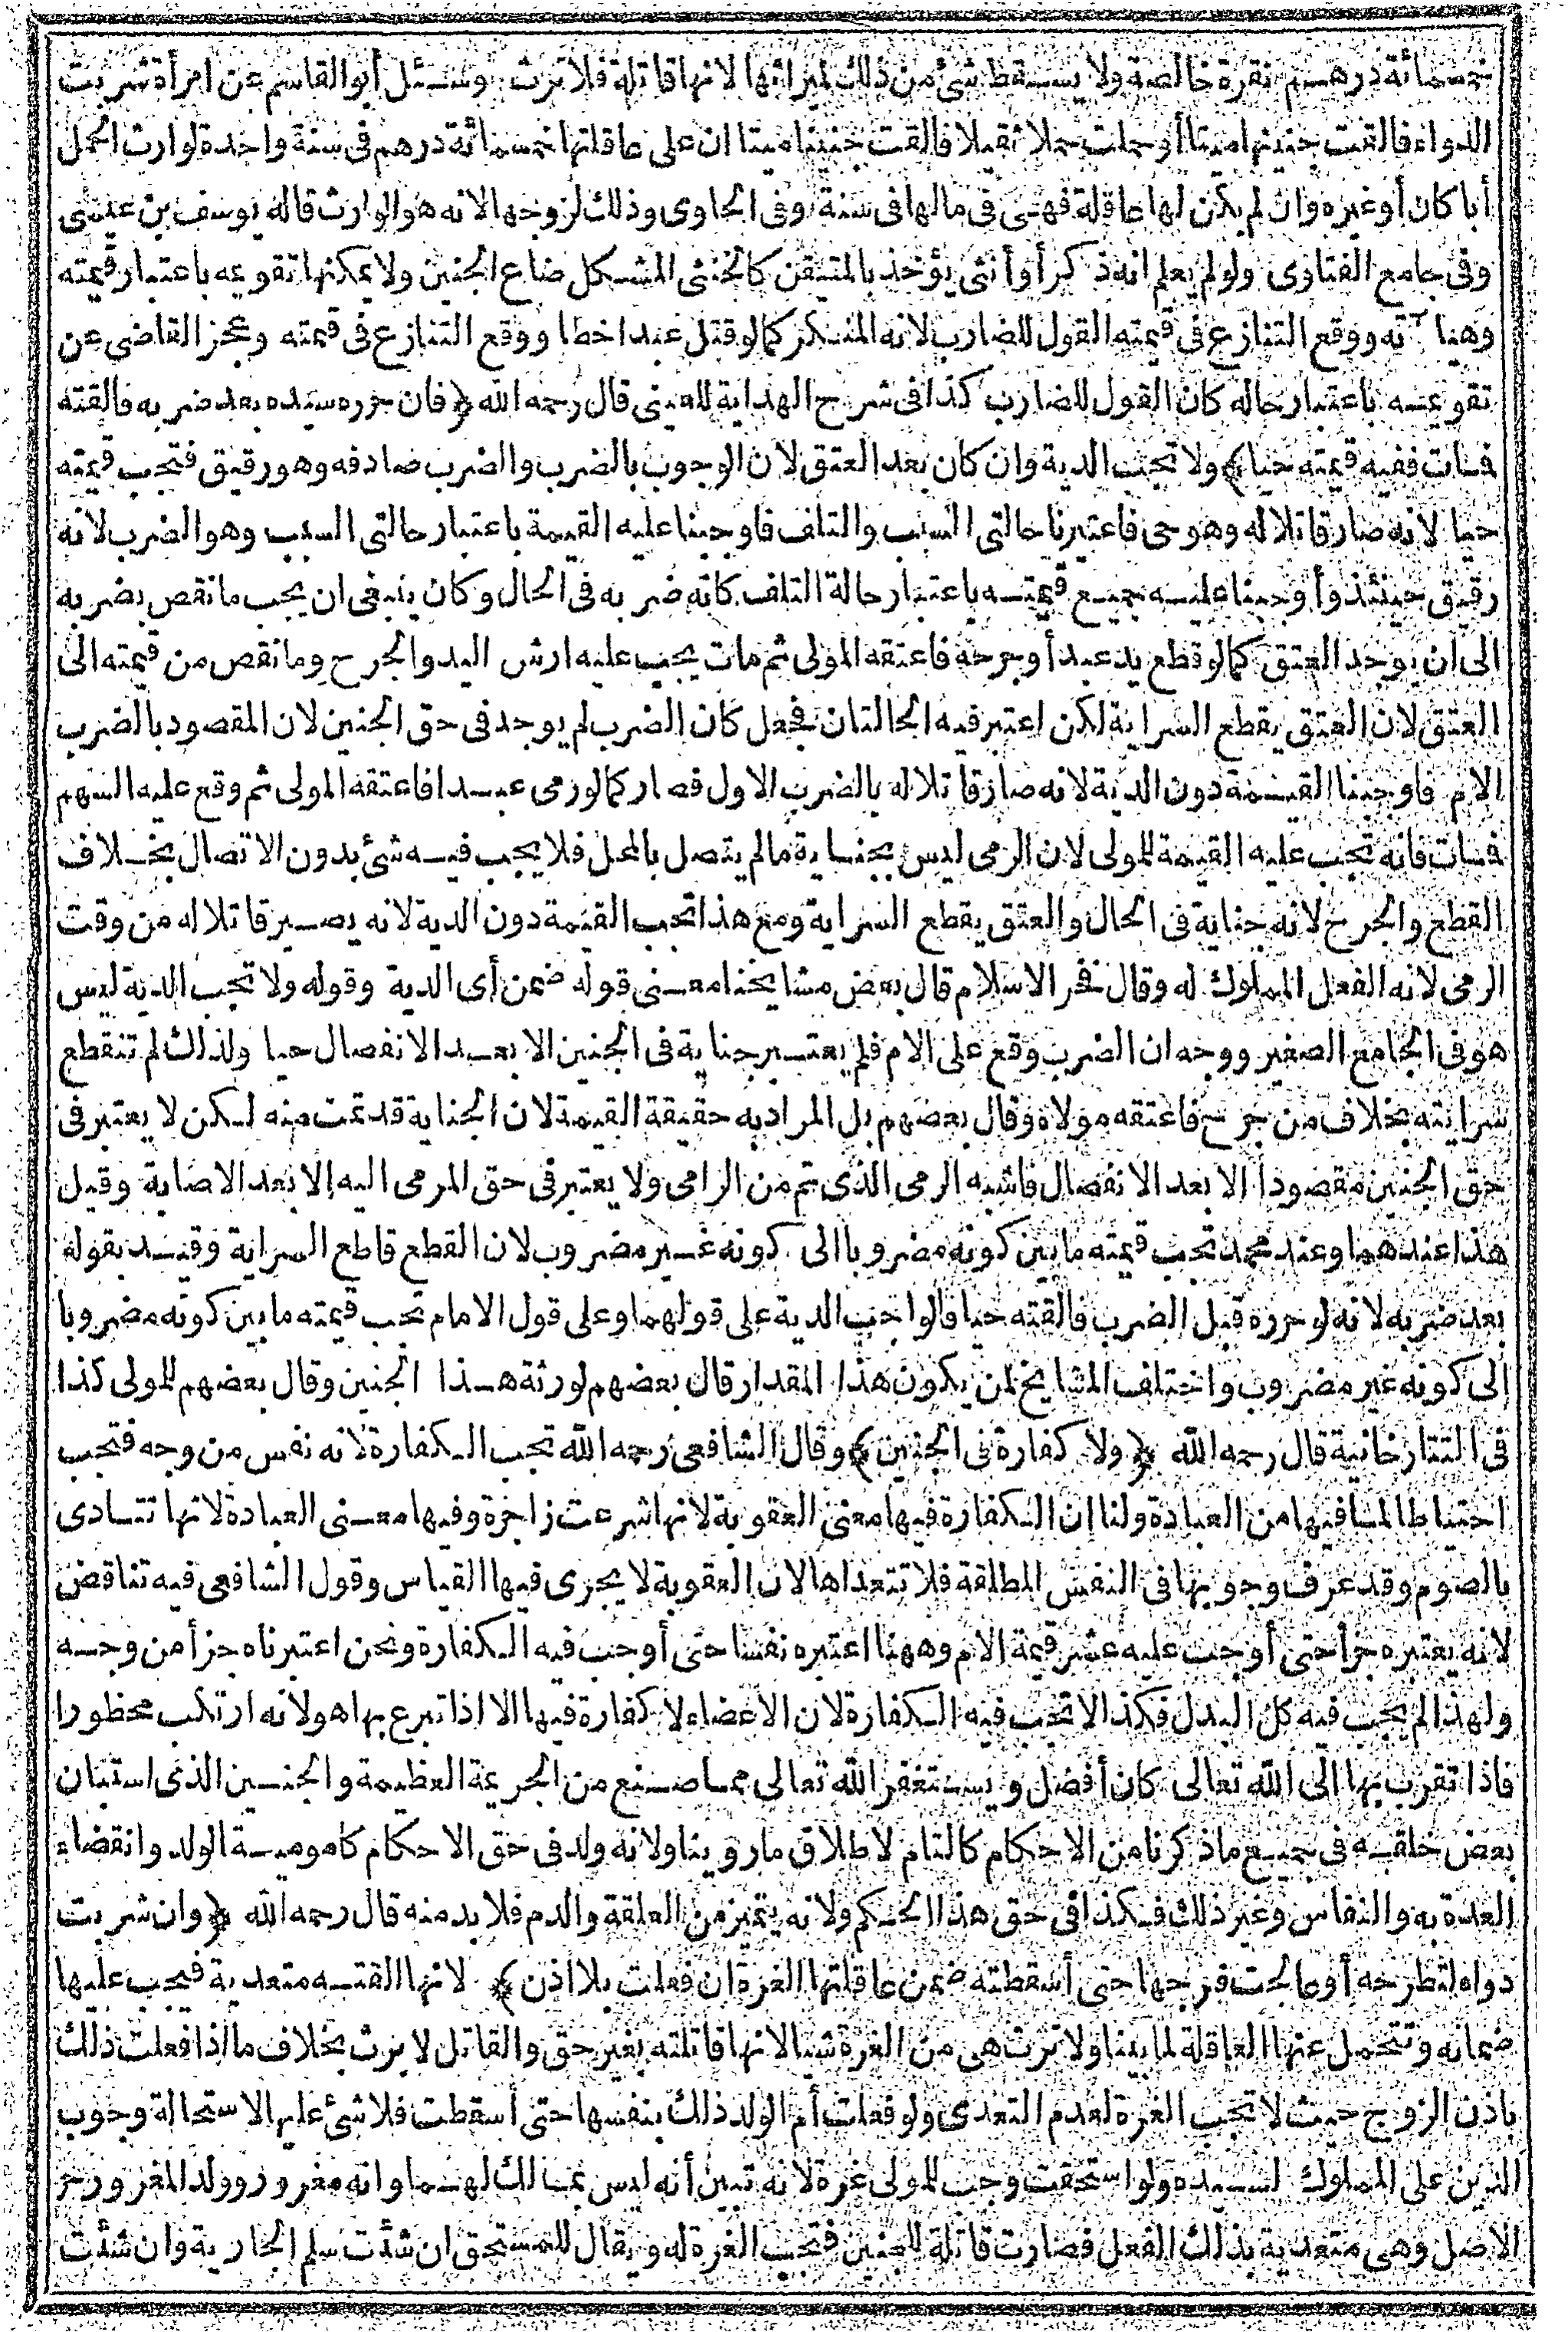 خمسمائة درهم نقرة خالصة ولا يسقط شئ من ذلك لميراثها لانها قاتلة فلا ترث وسئل أبو القاسم عن امرأة شربت
الدواء فالقت جنينها ميتا أو حملت حملا ثقيلا فالقت جنينا ميتا ان على عاقلتها خمسمائة درهم فى سنة واحدة لوارث الحمل
أبا كان أو غيره وان لم يكن لها عاقلة فهى فى مالها فى سنة وفى الحاوى وذلك لزوجها لانه هو الوارث قاله يوسف بن عيسى
وفى جامع الفتاوى ولو لم يعلم انه ذكر أو أنثى يؤخذ بالمتيقن كالخنثى المشكل ضاع الجنين ولا يمكنها تقويمه باعتبار قيمته
وهيا ته ووقع التنازع فى قيمته القول للضارب لانه المنكر كما لو قتل عبدا خطا ووقع التنازع فى قيمته وعجز القاضى عن
تقويمه باعتبار حاله كان القول للضارب كذا فى شرح الهداية للعينى قال رحمه الله ﴿فان حرره سيده بعد ضربه فالقته
فمات ففيه قيمته حيا﴾ ولا تجب الدية وان كان بعد العتق لان الوجوب بالضرب والضرب صادفه وهو رقيق فتجب قيمته
حيا لانه صار قاتلا له وهو حى فاعتبرنا حالتى السبب والتلف فاوجبنا عليه القيمة باعتبار حالتى السبب وهو الضرب لانه
رقيق حينئذ وأوجبنا عليه جميع قيمته باعتبار حالة التلف كانه ضربه فى الحال وكان ينبغى ان يجب ما نقص بضربه
الى ان يوجد العتق كما لو قطع يد عبد أو جرحه فاعتقه المولى ثم مات يجب عليه ارش اليد والجرح وما نقص من قيمته الى
العتق لان العتق يقطع السراية لكن اعتبر فيه الحالتان فجعل كان الضرب لم يوجد فى حق الجنين لان المقصود بالضرب
الام فاوجبنا القيمة دون الدية لانه صار قاتلا له بالضرب الاول فصار كما لو رمى عبدا فاعتقه المولى ثم وقع عليه السهم
فمات فانه تجب عليه القيمة للمولى لان الرمى ليس بجناية ما لم يتصل بالمحل فلا يجب فيه شئ بدون الاتصال بخلاف
القطع والجرح لانه جناية فى الحال والعتق يقطع السراية ومع هذا تجب القيمة دون الدية لانه يصير قاتلا له من وقت
الرمى لانه الفعل المملوك له وقال فخر الاسلام قال بعض مشايخنا معنى قوله ضمن أى الدية وقوله ولا تجب الدية ليس
هو فى الجامع الصغير ووجه ان الضرب وقع على الام فلم يعتبر جناية فى الجنين الا بعد الانفصال حيا ولذلك لم تنقطع
سرايته بخلاف من جرح فاعتقه مولاه وقال بعضهم بل المراد به حقيقة القيمة لان الجناية قد تمت منه لكن لا يعتبر فى
حق الجنين مقصودا الا بعد الانفصال فاشبه الرمى الذى تم من الرامى ولا يعتبر فى حق المرمى اليه إلا بعد الاصابة وقيل
هذا عندهما وعند محمد تجب قيمته ما بين كونه مضروبا الى كونه غير مضروب لان القطع قاطع السراية وقيد بقوله
بعد ضربه لانه لو حرره قبل الضرب فالقته حيا فالواجب الدية على قولهما وعلى قول الامام تجب قيمته ما بين كونه مضروبا
إلى كونه غير مضروب واختلف المشايخ لمن يكون هذا المقدار قال بعضهم لورثة هذا الجنين وقال بعضهم للمولى كذا
فى التتارخانية قال رحمه الله ﴿ولا كفارة فى الجنين﴾ وقال الشافعى رحمه الله تجب الكفارة لانه نفس من وجه فتجب
احتياطا لما فيها من العبادة ولنا ان الكفارة فيها معنى العقوبة لانها شرعت زاجرة وفيها معنى العبادة لانها تتادى
بالصوم وقد عرف وجوبها فى النفس المطلقة فلا تتعداها لان العقوبة لا يجرى فيها القياس وقول الشافعى فيه تناقض
لانه يعتبره جزأ حتى أوجب عليه عشر قيمة الام وههنا اعتبره نفسا حتى أوجب فيه الكفارة ونحن اعتبرناه جزأ من وجه
ولهذا لم يجب فيه كل البدل فكذا لا تجب فيه الكفارة لان الاعضاء لا كفارة فيها الا اذا تبرع بها هو لانه ارتكب محظورا
فاذا تقرب بها الى الله تعالى كان أفضل ويستغفر الله تعالى مما صنع من الجريمة العظيمة والجنين الذى استبان
بعض خلقه فى جميع ما ذكرنا من الاحكام كالتام لاطلاق ما روينا ولانه ولد فى حق الاحكام كامومية الولد وانقضاء
العدة به والنفاس وغير ذلك فكذا فى حق هذا الحكم ولانه يتميز من العلقة والدم فلا بد منه قال رحمه الله ﴿وان شربت
دواء لتطرحه أو عالجت فرجها حتى أسقطته ضمن عاقلتها الغرة ان فعلت بلا اذن﴾ لانها القته متعدية فيجب عليها
ضمانه وتتحمل عنها العاقلة لما بينا ولا ترث هى من الغرة شيا لانها قاتلته بغير حق والقاتل لا يرث بخلاف ما اذا فعلت ذلك
باذن الزوج حيث لا تجب الغرة لعدم التعدى ولو فعلت أم الولد ذلك بنفسها حتى أسقطت فلا شئ عليها لاستحالة وجوب
الدين على المملوك لسيده ولو استحقت وجب للمولى غرة لانه تبين أنه ليس بمالك لهما وانه مغرور وولد المغرور حر
الاصل وهى متعدية بذلك الفعل فصارت قاتلة للجنين فتجب الغرة له ويقال للمستحق ان شئت سلم الجارية وان شئت